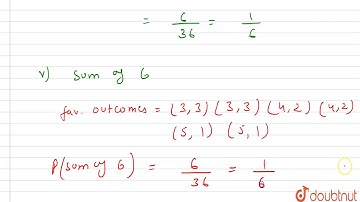 = 6/36 = 1/6
v) Sum of 6
fav. outcomes = (3,3) (3,3) (4,2) (4,2)
(5,1) (5,1)
P(sum of 6) = 6/36 = 1/6
doubtnut